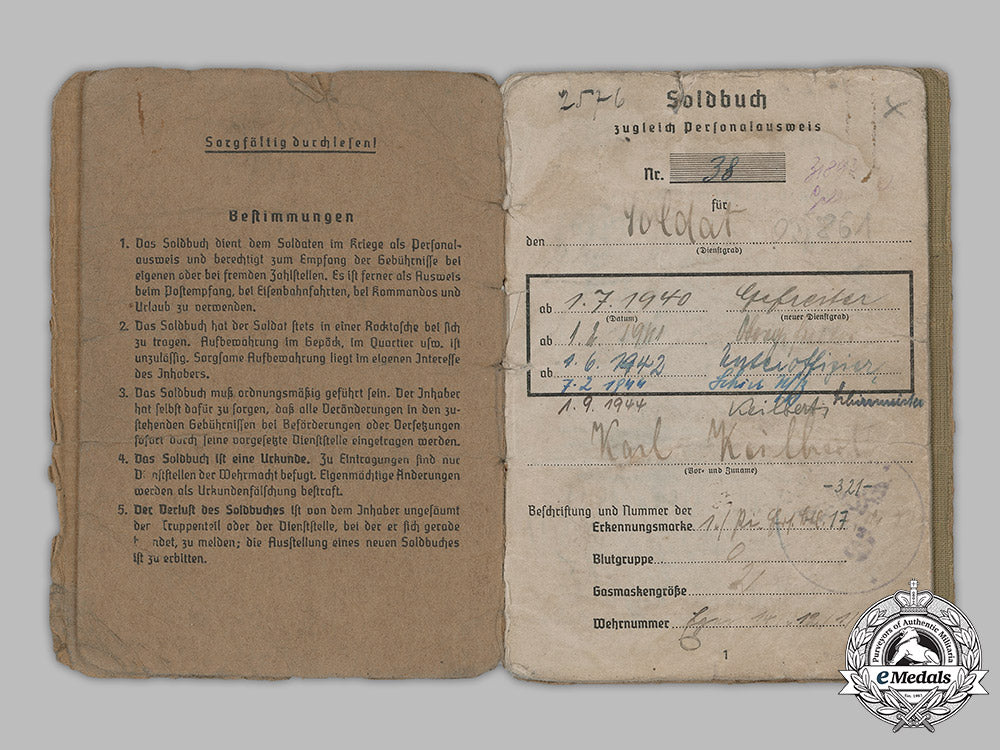 Sorgfältig durchlesen!
Bestimmungen
1. Das Soldbuch dient dem Soldaten im Kriege als Personal-
ausweis und berechtigt zum Empfang der Gebührnisse bei
eigenen oder bei fremden Zahlstellen. Es ist ferner als Ausweis
beim Postempfang, bei Eisenbahnfahrten, bei Kommandos und
Urlaub zu verwenden.
2. Das Soldbuch hat der Soldat stets in einer Rocktasche bei sich
zu tragen. Aufbewahrung im Gepäck, im Quartier usw. ist
unzulässig. Sorgsame Aufbewahrung liegt im eigenen Interesse
des Inhabers.
3. Das Soldbuch muß ordnungsmäßig geführt sein. Der Inhaber
hat selbst dafür zu sorgen, daß alle Veränderungen in den zu-
stehenden Gebührnissen bei Beförderungen oder Versetzungen
sofort durch seine vorgesetzte Dienststelle eingetragen werden.
4. Das Soldbuch ist eine Urkunde. Zu Eintragungen sind nur
Dienststellen der Wehrmacht befugt. Eigenmächtige Änderungen
werden als Urkundenfälschung bestraft.
5. Der Verlust des Soldbuches ist von dem Inhaber ungesäumt
der Truppenteil oder der Dienststelle, bei der er sich gerade
zu melden; die Ausstellung eines neuen Soldbuches
ist zu erbitten.
2576 Soldbuch
zugleich Personalausweis
Nr. 38
für
den Soldat
(Dienstgrad)
ab 1.7.1940 Gefreiter
(Datum) (neuer Dienstgrad)
ab
ab 1.6.1942 Unteroffizier
7.2.1944
1.9.1944 Keilbert Schirrmeister
Karl Keilbert
(Vor- und Zuname)
-321-
Beschriftung und Nummer der
Erkennungsmarke 17
Blutgruppe
Gasmaskengröße
Wehrnummer
1
Purveyors of Authentic Militaria
eMedals